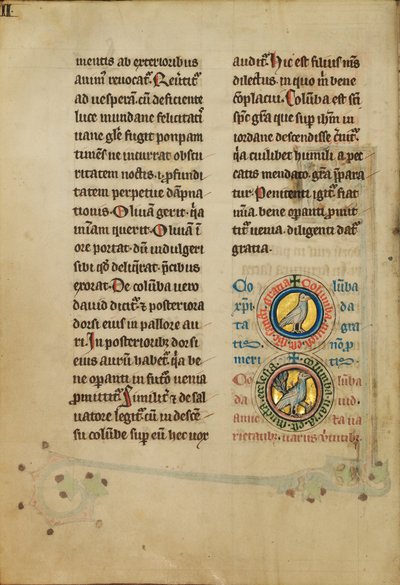 II.
mentis ab exterioribus
animū reuocat̉. Reūtit̉
ad uesperā. cū deficiente
luce mundane felicitatꝭ
uane gle fugit ponpam
timēs ne incurrat obscu
ritatem noctis. i. ꝓfundi
tatem perpetue dāpna
tionis. Oliuā gerit. qͥa
mīam querit. Oliuam ī
ore portat. dum indulgeri
sibi qd̓ deliq̄rat. p̄cibus
exorat. De coluba uero
dauid dicit̉. ⁊ posteriora
dorsi eius in pallore au
ri. In posteriorib; dorsi
eius aurū habet̉. qͥa be
ne opanti in futo uenia
ꝓmittit̉. Similit̉ ⁊ de sal
uatore legit̉. cū in desce
su colube sup eū hec uox
audit̉. Hic est filius ms̄
dilectus. in quo m̄ bene
coplacui. Coluba est sci
spc grā que sup ihm in
iordane descendisse cernit̉.
qͥa cuilibet humili. a pec
catis mendato. grā ſpara
tur. Penitenti igit̉ fiat
mīa. bene opanti. ꝓmit
tit̉ uenia. diligenti dat̉
gratia.
Co luba
xpi da
ta gra
ti no. p
meri ti.
Co luba
da ua
uarus
Columba
gratia
Columba uaria est sancta ecclesia